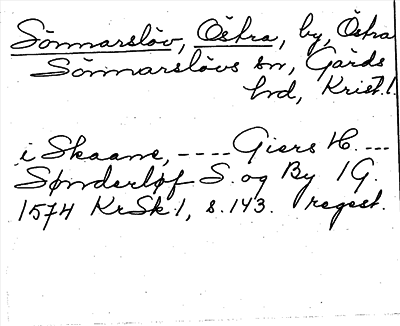 Sönnarslöv, Östra, by, Östra
Sönnarslövs sn, Gärds
hd, Krist. l.
i Skaane, ---- Giers H. ---
Sønderløf S. og By 1 G.
1574 KrSk 1, s. 143. regest.